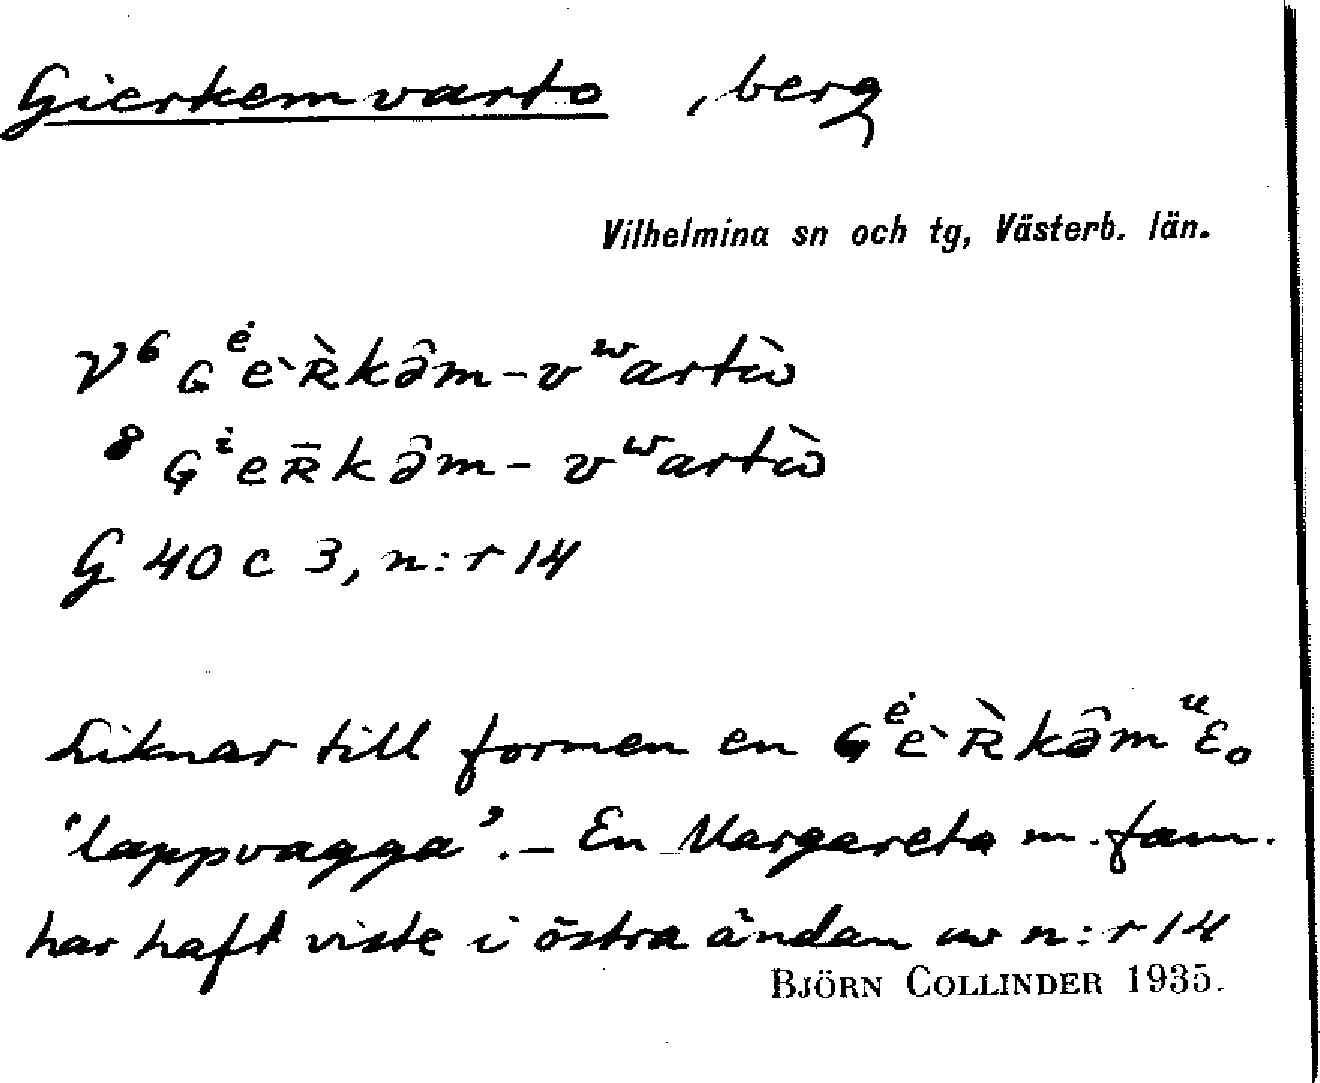 Gierkemvarto , berg
Vilhelmina sn och tg, Västerb. län.
V⁶ ɢᵉ̇e`ʀ̀kə̑m-vʷartὼ
⁸ ɢⁱeʀ̄kə̑m-vʷartὼ
G 40 c 3, n:r 14
Liknar till formen en ɢᵉ̇e`ʀ̀kə̑mᵘɛ₀
'lappvagga'. – En Margareta m. fam.
har haft viste i östra ändan av n:r 14
BJÖRN COLLINDER 1935.